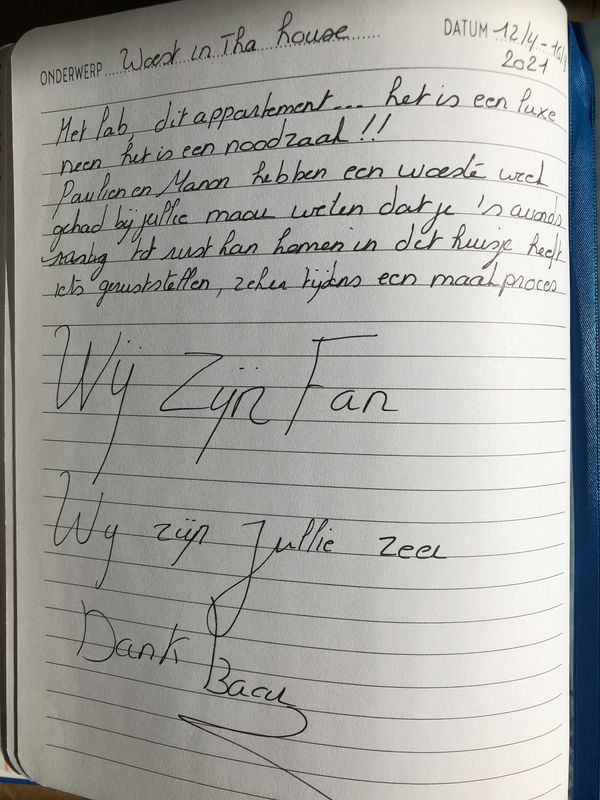 ONDERWERP Woest in Tha house
DATUM 12/4 - 16/4
2021
Het lab, dit appartement... het is een luxe
neen het is een noodzaak !!
Paulien en Manon hebben een woeste week
gehad bij jullie maar weten dat je 's avonds
rustig tot rust kan komen in dit huisje heeft
iets geruststellen, zeker tijdens een maakproces
Wij Zijn Fan
Wij zijn Jullie zeer
Dank Baar